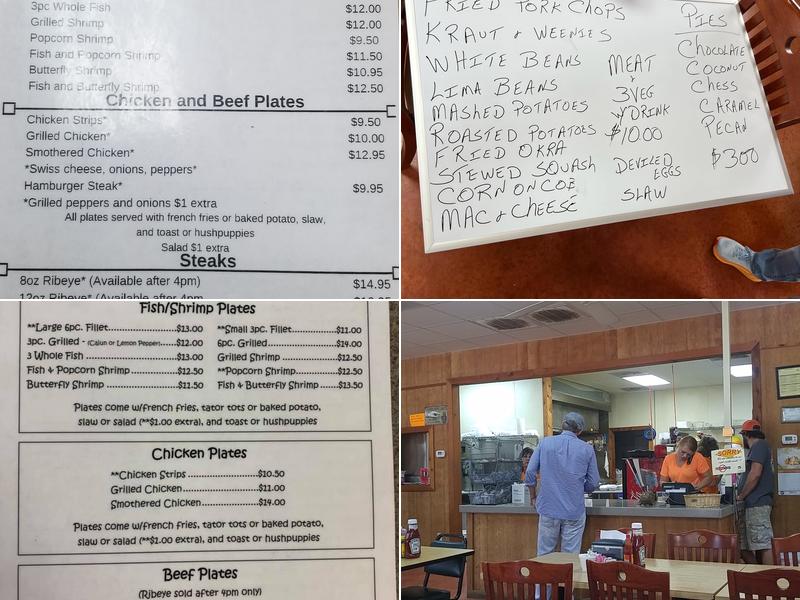 3pc Whole Fish $12.00
Grilled Shrimp $12.00
Popcorn Shrimp $9.50
Fish and Popcorn Shrimp $11.50
Butterfly Shrimp $10.95
Fish and Butterfly Shrimp $12.50
Chicken and Beef Plates
Chicken Strips* $9.50
Grilled Chicken* $10.00
Smothered Chicken* $12.95
*Swiss cheese, onions, peppers*
Hamburger Steak* $9.95
*Grilled peppers and onions $1 extra
All plates served with french fries or baked potato, slaw,
and toast or hushpuppies
Salad $1 extra
Steaks
8oz Ribeye* (Available after 4pm) $14.95
12oz Ribeye* (Available after 4pm
FRIED PORK CHOPS
KRAUT & WEENIES
WHITE BEANS
LIMA BEANS
MASHED POTATOES
ROASTED POTATOES
FRIED OKRA
STEWED SQUASH
CORN ON COB
MAC & CHEESE
MEAT
+
3 VEG
W/DRINK
$10.00
DEVILED
EGGS
SLAW
PIES
CHOCOLATE
COCONUT
CHESS
CARAMEL
PECAN
$3.00
Fish/Shrimp Plates
**Large 6pc. Fillet.......................$13.00 **Small 3pc. Fillet...................$11.00
3pc. Grilled - (Cajun or Lemon Pepper)......$12.00 6pc. Grilled..........................$14.00
3 Whole Fish .............................$13.00 Grilled Shrimp .....................$12.50
Fish & Popcorn Shrimp ...............$12.50 **Popcorn Shrimp..................$12.50
Butterfly Shrimp ........................$11.50 Fish & Butterfly Shrimp ......$13.50
Plates come w/french fries, tator tots or baked potato,
slaw or salad (**$1.00 extra), and toast or hushpuppies
Chicken Plates
**Chicken Strips ........................$10.50
Grilled Chicken..........................$11.00
Smothered Chicken....................$14.00
Plates come w/french fries, tator tots or baked potato,
slaw or salad (**$1.00 extra), and toast or hushpuppies
Beef Plates
(Ribeye sold after 4pm only)
SORRY